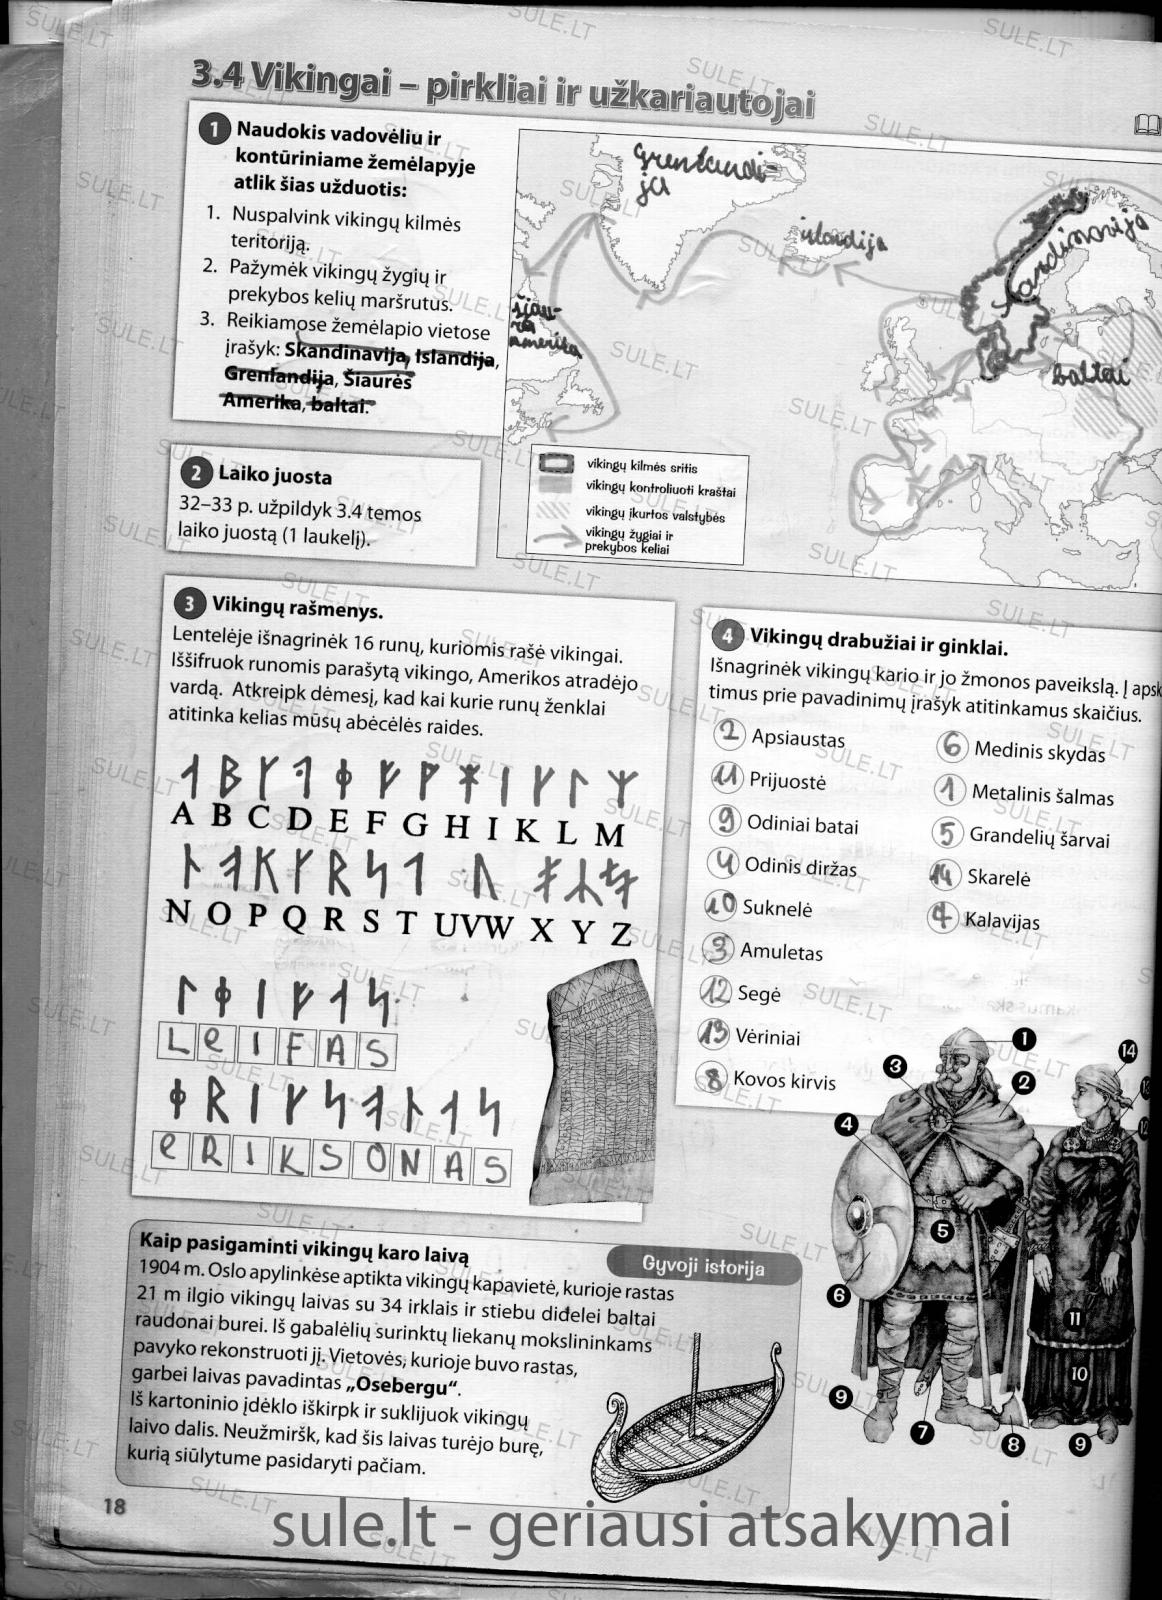 3.4 Vikingai – pirkliai ir užkariautojai
1 Naudokis vadovėliu ir
kontūriniame žemėlapyje
atlik šias užduotis:
1. Nuspalvink vikingų kilmės
teritoriją.
2. Pažymėk vikingų žygių ir
prekybos kelių maršrutus.
3. Reikiamose žemėlapio vietose
įrašyk: Skandinavija, Islandija,
Grenlandija, Šiaurės
Amerika, baltai.
Grenlandi-
ja
islandija
Skandinavija
šiau-
ra
amerika
baltai
vikingų kilmės sritis
vikingų kontroliuoti kraštai
vikingų įkurtos valstybės
vikingų žygiai ir
prekybos keliai
2 Laiko juosta
32–33 p. užpildyk 3.4 temos
laiko juostą (1 laukelį).
3 Vikingų rašmenys.
Lentelėje išnagrinėk 16 runų, kuriomis rašė vikingai.
Iššifruok runomis parašytą vikingo, Amerikos atradėjo
vardą. Atkreipk dėmesį, kad kai kurie runų ženklai
atitinka kelias mūsų abėcėlės raides.
A B C D E F G H I K L M
N O P Q R S T UVW X Y Z
L e I F A S
e R I K S O N A S
4 Vikingų drabužiai ir ginklai.
Išnagrinėk vikingų kario ir jo žmonos paveikslą. Į apsk
timus prie pavadinimų įrašyk atitinkamus skaičius.
2 Apsiaustas
11 Prijuostė
9 Odiniai batai
4 Odinis diržas
10 Suknelė
3 Amuletas
12 Segė
13 Vėriniai
8 Kovos kirvis
6 Medinis skydas
1 Metalinis šalmas
5 Grandelių šarvai
14 Skarelė
7 Kalavijas
1
14
3
2
4
5
6
11
10
9
7
8
9
Kaip pasigaminti vikingų karo laivą
Gyvoji istorija
1904 m. Oslo apylinkėse aptikta vikingų kapavietė, kurioje rastas
21 m ilgio vikingų laivas su 34 irklais ir stiebu didelei baltai
raudonai burei. Iš gabalėlių surinktų liekanų mokslininkams
pavyko rekonstruoti jį. Vietovės, kurioje buvo rastas,
garbei laivas pavadintas „Osebergu“.
Iš kartoninio įdėklo iškirpk ir suklijuok vikingų
laivo dalis. Neužmiršk, kad šis laivas turėjo burę,
kurią siūlytume pasidaryti pačiam.
18
sule.lt - geriausi atsakymai
SULE.LT